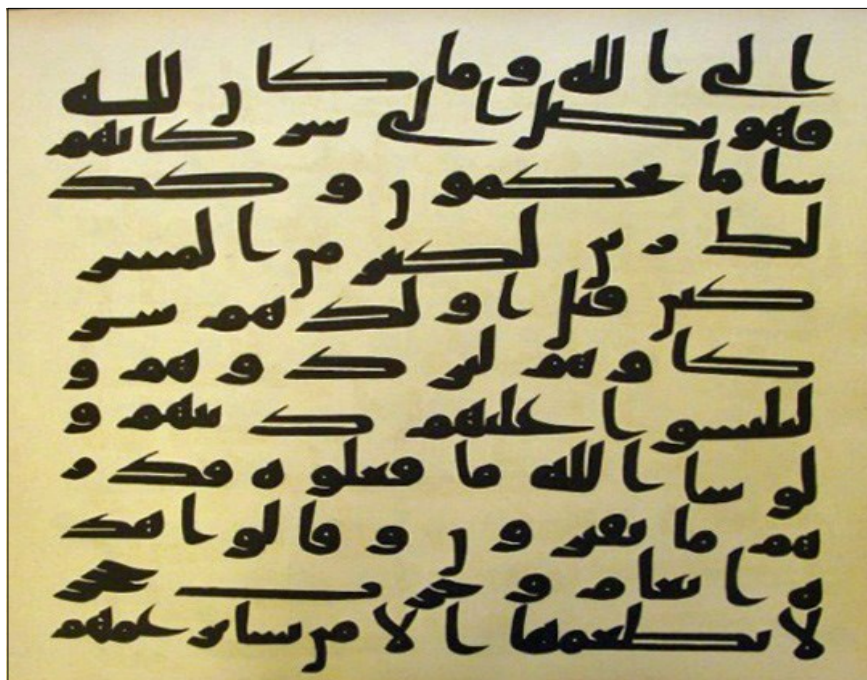 الى الله وما كان لله
فهو يصل الى شركائهم
سا ما يحكمون وكذ
لك زين لكثير من المشر
كين قتل اولدهم شر
كاوهم ليردوهم و
ليلبسوا عليهم دينهم و
لو شا الله ما فعلوه فذر
هم ما يفترون وقالوا هذ
ه انعام وحرث حجر
لا يطعمها الا من نشا بزعمهم